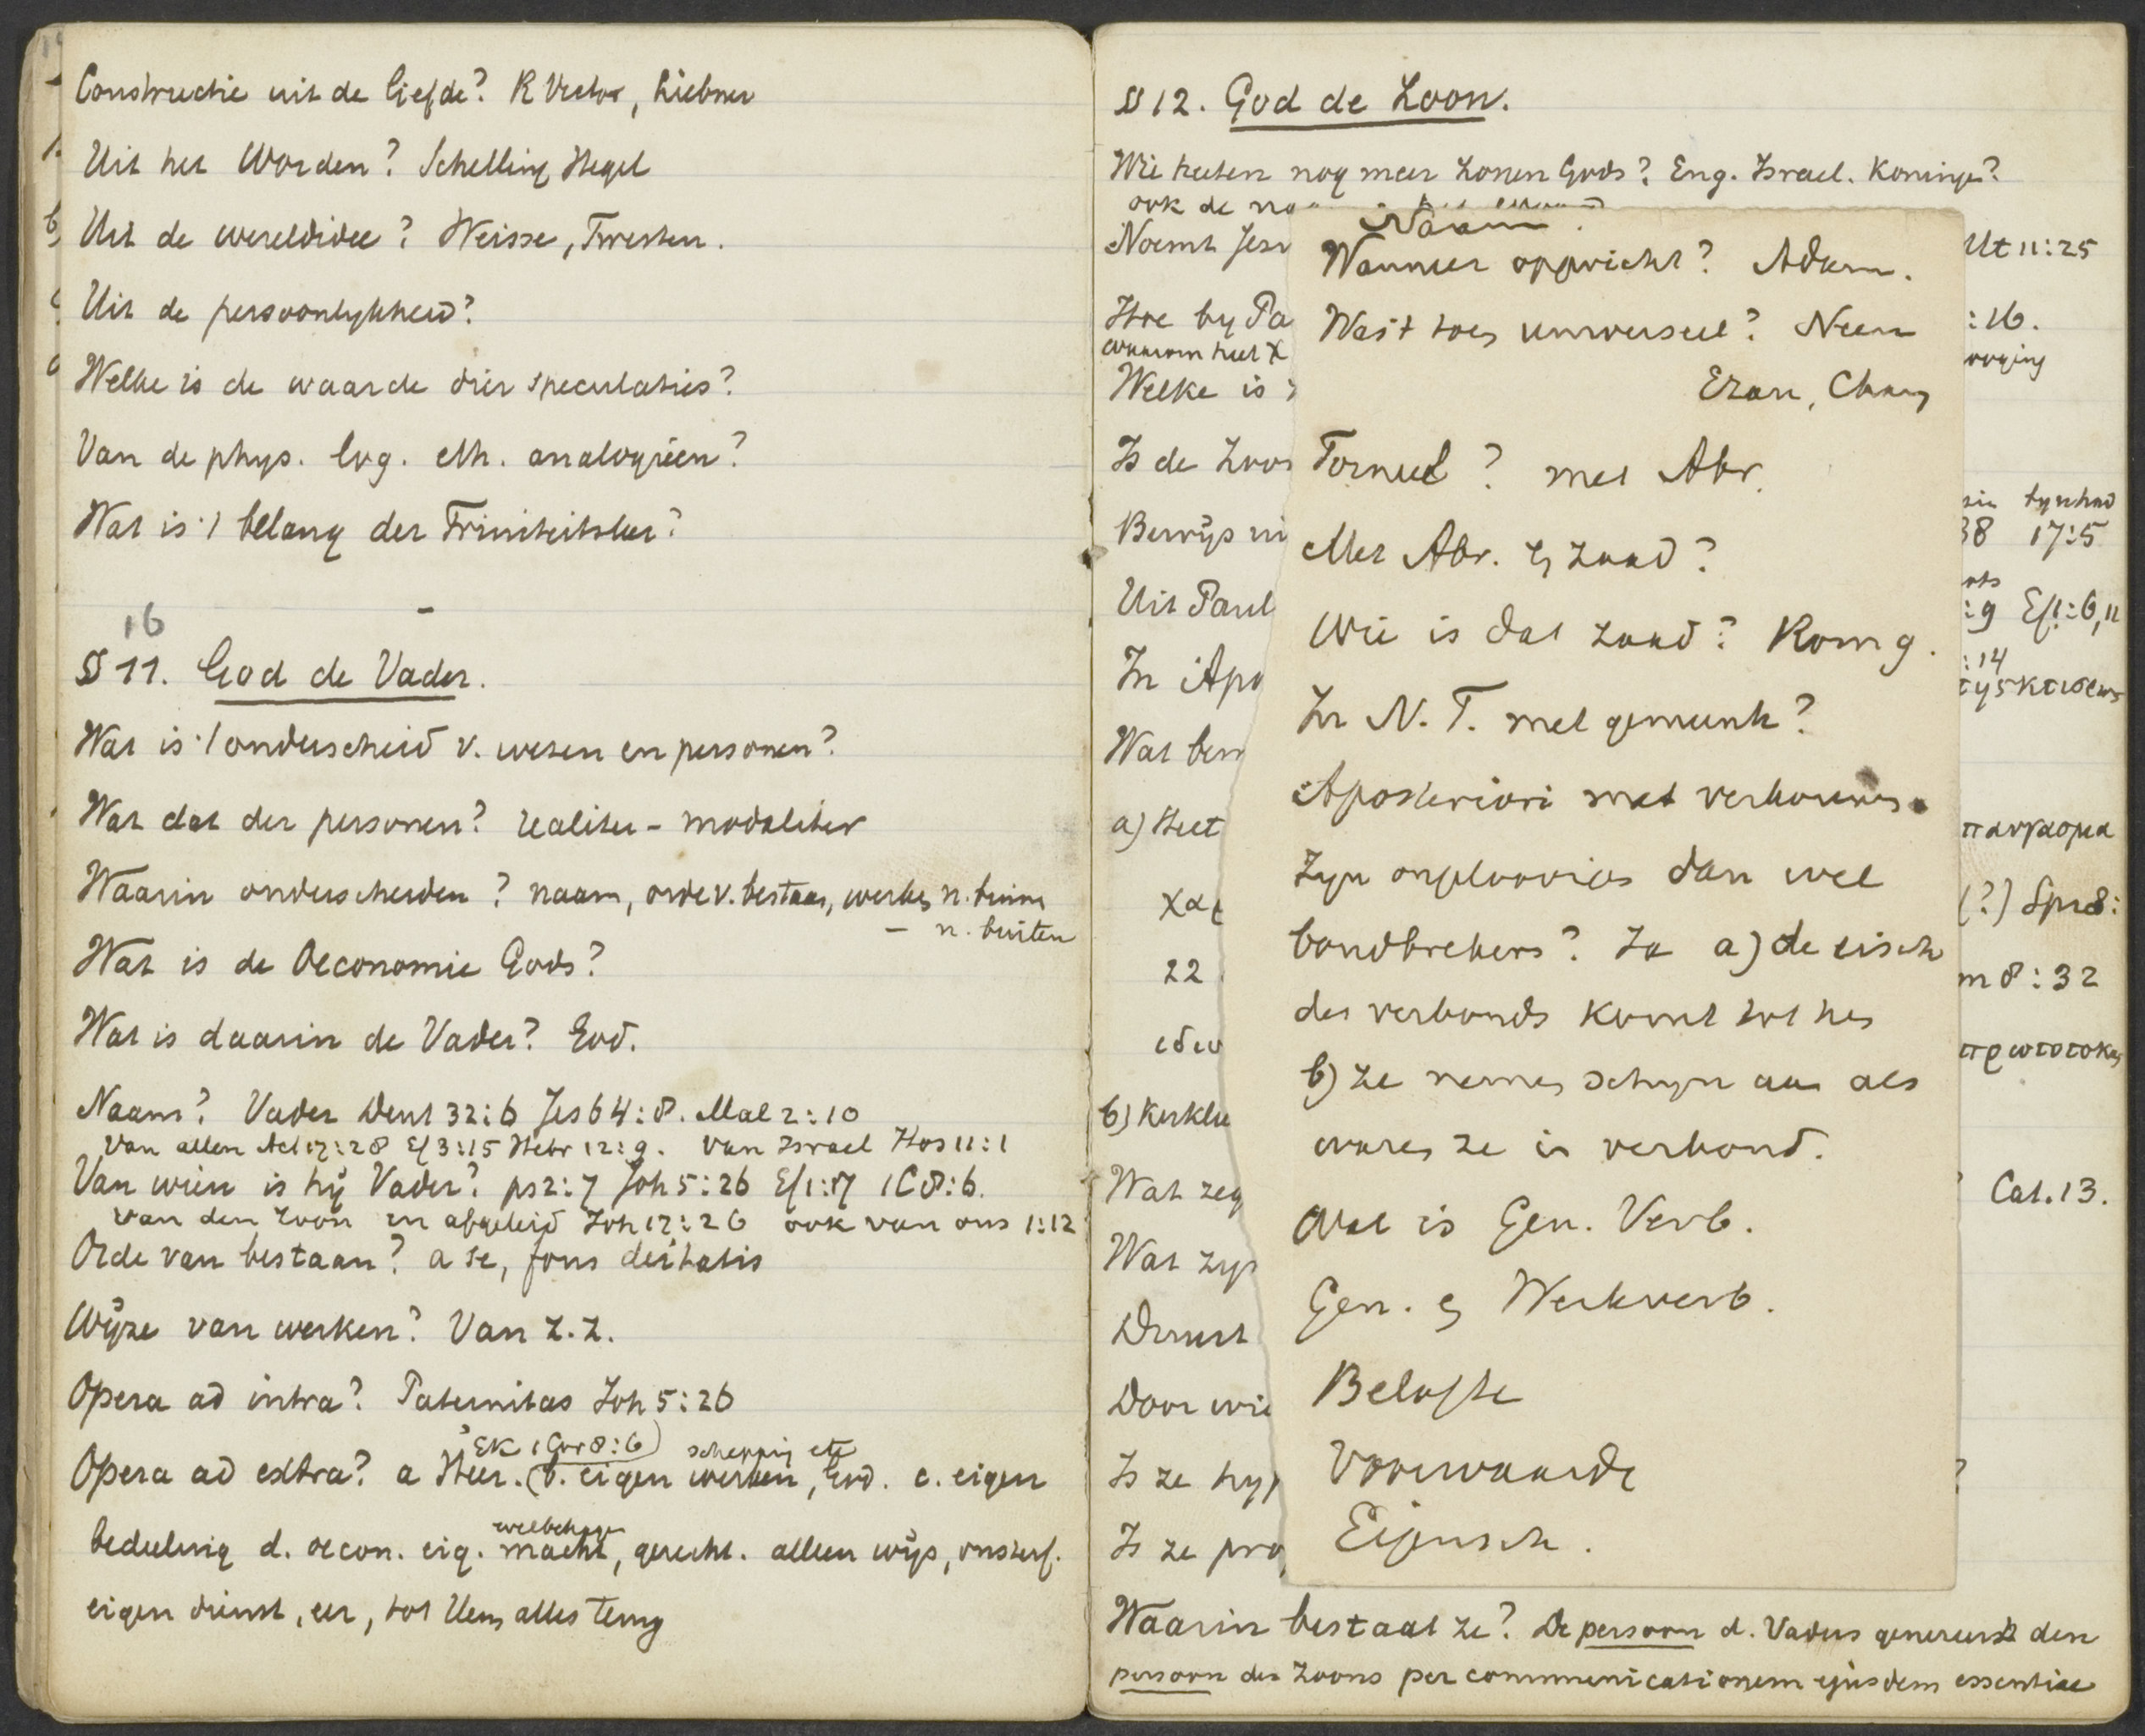 Constructie uit de liefde? R Victor, Liebner
Uit het Worden? Schelling Hegel
Uit de wereldidee? Weisse, Twesten.
Uit de persoonlykheid?
Welke is de waarde dier speculaties?
Van de phys. log. eth. analogieën?
Wat is 't belang der Triniteitsleer?
16
§ 11. God de Vader.
Wat is 't onderscheid v. wezen en personen?
Wat dat der personen? realiter - modaliter
Waarin onderscheiden? naam, orde v. bestaan, werken n. binnen
– n. buiten
Wat is de Oeconomie Gods?
Wat is daarin de Vader?
Naam? Vader Deut 32:6 Jes 64:8. Mal 2:10
Van allen Act 17:28 Ef 3:15 Hebr 12:9. van Israel Hos 11:1
Van wien is hij Vader? ps 2:7 Joh 5:26 Ef 1:17 1C 8:6.
van den Zoon en afgeleid Joh 17:26 ook van ons 1:12
Orde van bestaan? a se, fons deitatis
Wijze van werken? Van Z.Z.
Opera ad intra? Paternitas Joh 5:26
Ek 1 Cor 8:6) schepping etc
Opera ad extra? a Heer. (b. eigen werken, c. eigen
welbehagen
bedeeling d. oecon. eig. macht, gerecht. alleen wijs, onsterf.
eigen dienst, eer, tot Hem alles terug
§ 12. God de Zoon.
Wie heeten nog meer Zonen Gods? Eng. Israel. Koningen?
ook de
Noemt Jez
Mt 11:25
Hoe by Pa
:16.
waarom heet X
Welke is
Is de Zoon
Bewijs ui
38 17:5
Uit Paul
:9 Ef 1:6,11
In Apo
:14
της κτισεως
Wat ben
a) Heet
παυγασμα
χαρ
(?) Spr 8:
22
m 8:32
ιδιο
πρωτοτοκος
b) Kerkle
Wat zeg
Cat. 13.
Wat zyn
Dienst
Door wie
Is ze hyp
?
Is ze pro
Waarin bestaat ze? De persoon d. Vaders genereert den
persoon des Zoons per communicationem ejusdem essentiae
Naam.
Wanneer opgericht? Adam.
Was 't toen universeel? Neen
Formeel? met Abr.
Met Abr. en zaad?
Wie is dat zaad?
In N.T. met gemeente?
Aposteriori met verbonden
Zyn ongeloovigen dan wel
bondbrekers? Ja a) de eisch
des verbonds komt tot hen
b) ze nemen schyn aan als
waren ze in verbond.
Wat is Gen. Verb.
Gen. en Werkverb.
Belofte
Voorwaarde
Eigensch.